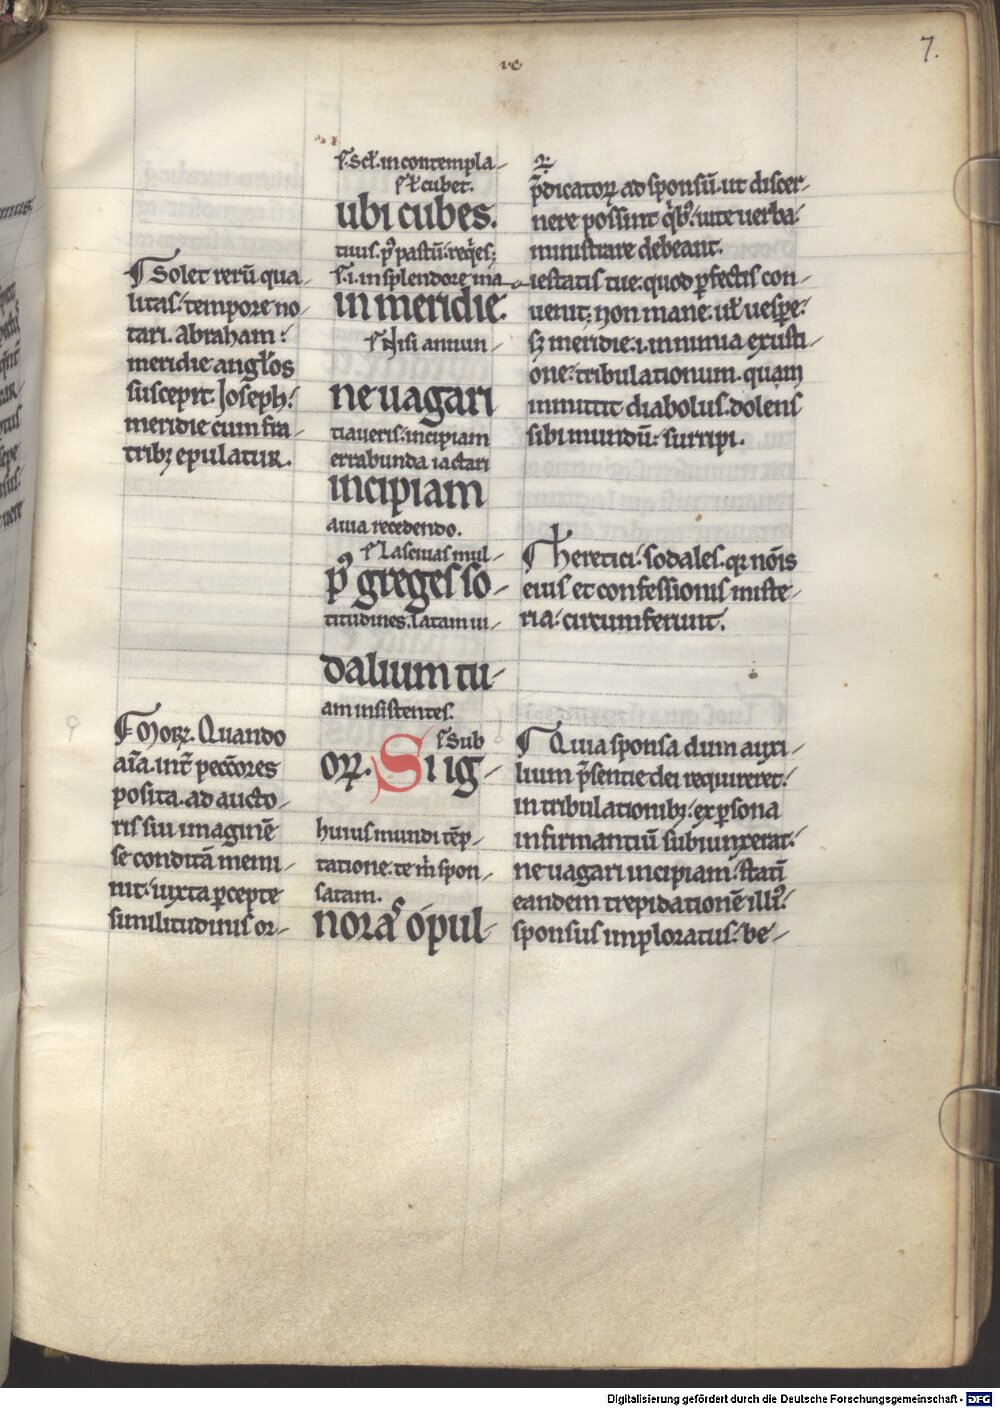 7.
⁊ Solet rerū qua-
litas: tempore no-
tari. Abraham:
meridie angl'os
suscepit. Joseph:
meridie cum fra-
tribꝫ epulatur.
Quando
aīa. int̄ pecc̄ores
posita. ad aucto-
ris sui imaginē
se conditā memi-
nit: iuxta ꝑcepte
similitudinis or-
incontempla-
cubet.
ubi cubes.
in splendore ma-
in meridie.
Nisi annun-
ne uagari
tiaueris. incipiam
errabunda iactari
incipiam
auia recedendo.
Lasciuas mul-
p⁹ greges so-
titudines. latam ui-
dalium tu-
am insistentes.
Sub
oꝝ. Si ig-
huius mundi tēp-
tatione. te m̄ spon-
satam.
nora s o pul-
p̄dicatoꝝ ad sponsū. ut discer-
nere possint qⁱbꝰ: uite uerba:
ministrare debeant.
iestatis tue. quod ꝑfectis con-
uenit: non mane. ul' uesꝑe:
sꝫ meridie. i. in nimia exusti-
one: tribulationum. quam
inmittit diabolus. dolens
sibi mundū: surripi.
heretici: sodales. qꝛ nōis
eius et confessionis miste-
ria: circumferunt.
Quia sponsa dum auxi-
lium p̄sentie dei requireret:
in tribulationibꝫ: ex ꝑsona
infirmantiū subiunxerat:
ne uagari incipiam: statī
eandem trepidationē illi⁹:
sponsus imploratus: be-
Digitalisierung gefördert durch die Deutsche Forschungsgemeinschaft - DFG